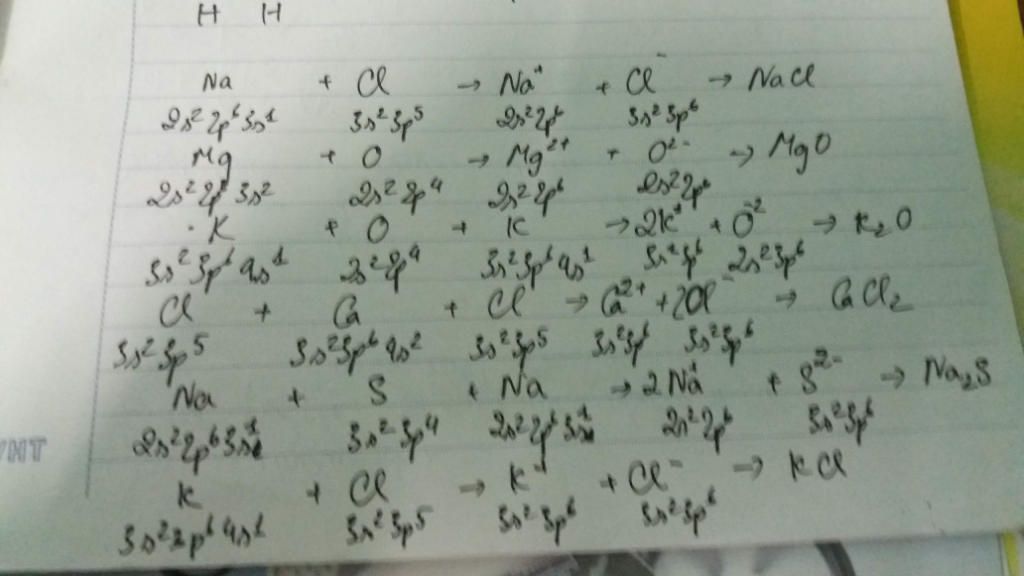 H H
Na + Cl → Na⁺ + Cl⁻ → NaCl
2s²2p⁶3s¹ 3s²3p⁵ 2s²2p⁶ 3s²3p⁶
Mg + O → Mg²⁺ + O²⁻ → MgO
2s²2p⁶3s² 2s²2p⁴ 2s²2p⁶ 2s²2p⁶
K + O + K → 2K⁺ + O⁻² → K₂O
3s²3p⁶4s¹ 2s²2p⁴ 3s²3p⁶4s¹ 3s²3p⁶ 2s²3p⁶
Cl + Ca + Cl → Ca²⁺ + 2Cl⁻ → CaCl₂
3s²3p⁵ 3s²3p⁶4s² 3s²3p⁵ 3s²3p⁶ 3s²3p⁶
Na + S + Na → 2Na⁺ + S²⁻ → Na₂S
2s²2p⁶3s¹ 3s²3p⁴ 2s²2p⁶3s¹ 2s²2p⁶ 3s²3p⁶
K + Cl → K⁺ + Cl⁻ → KCl
3s²3p⁶4s¹ 3s²3p⁵ 3s²3p⁶ 3s²3p⁶